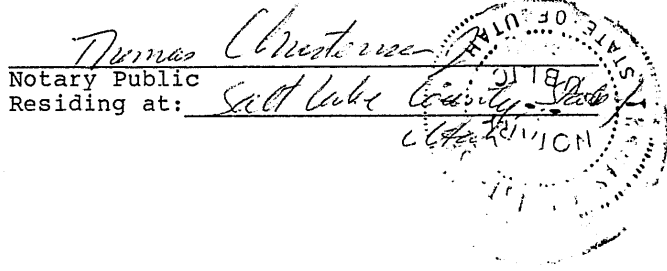 Thomas Christensen
Notary Public
Residing at: Salt Lake County, State
Utah
STATE OF UTAH